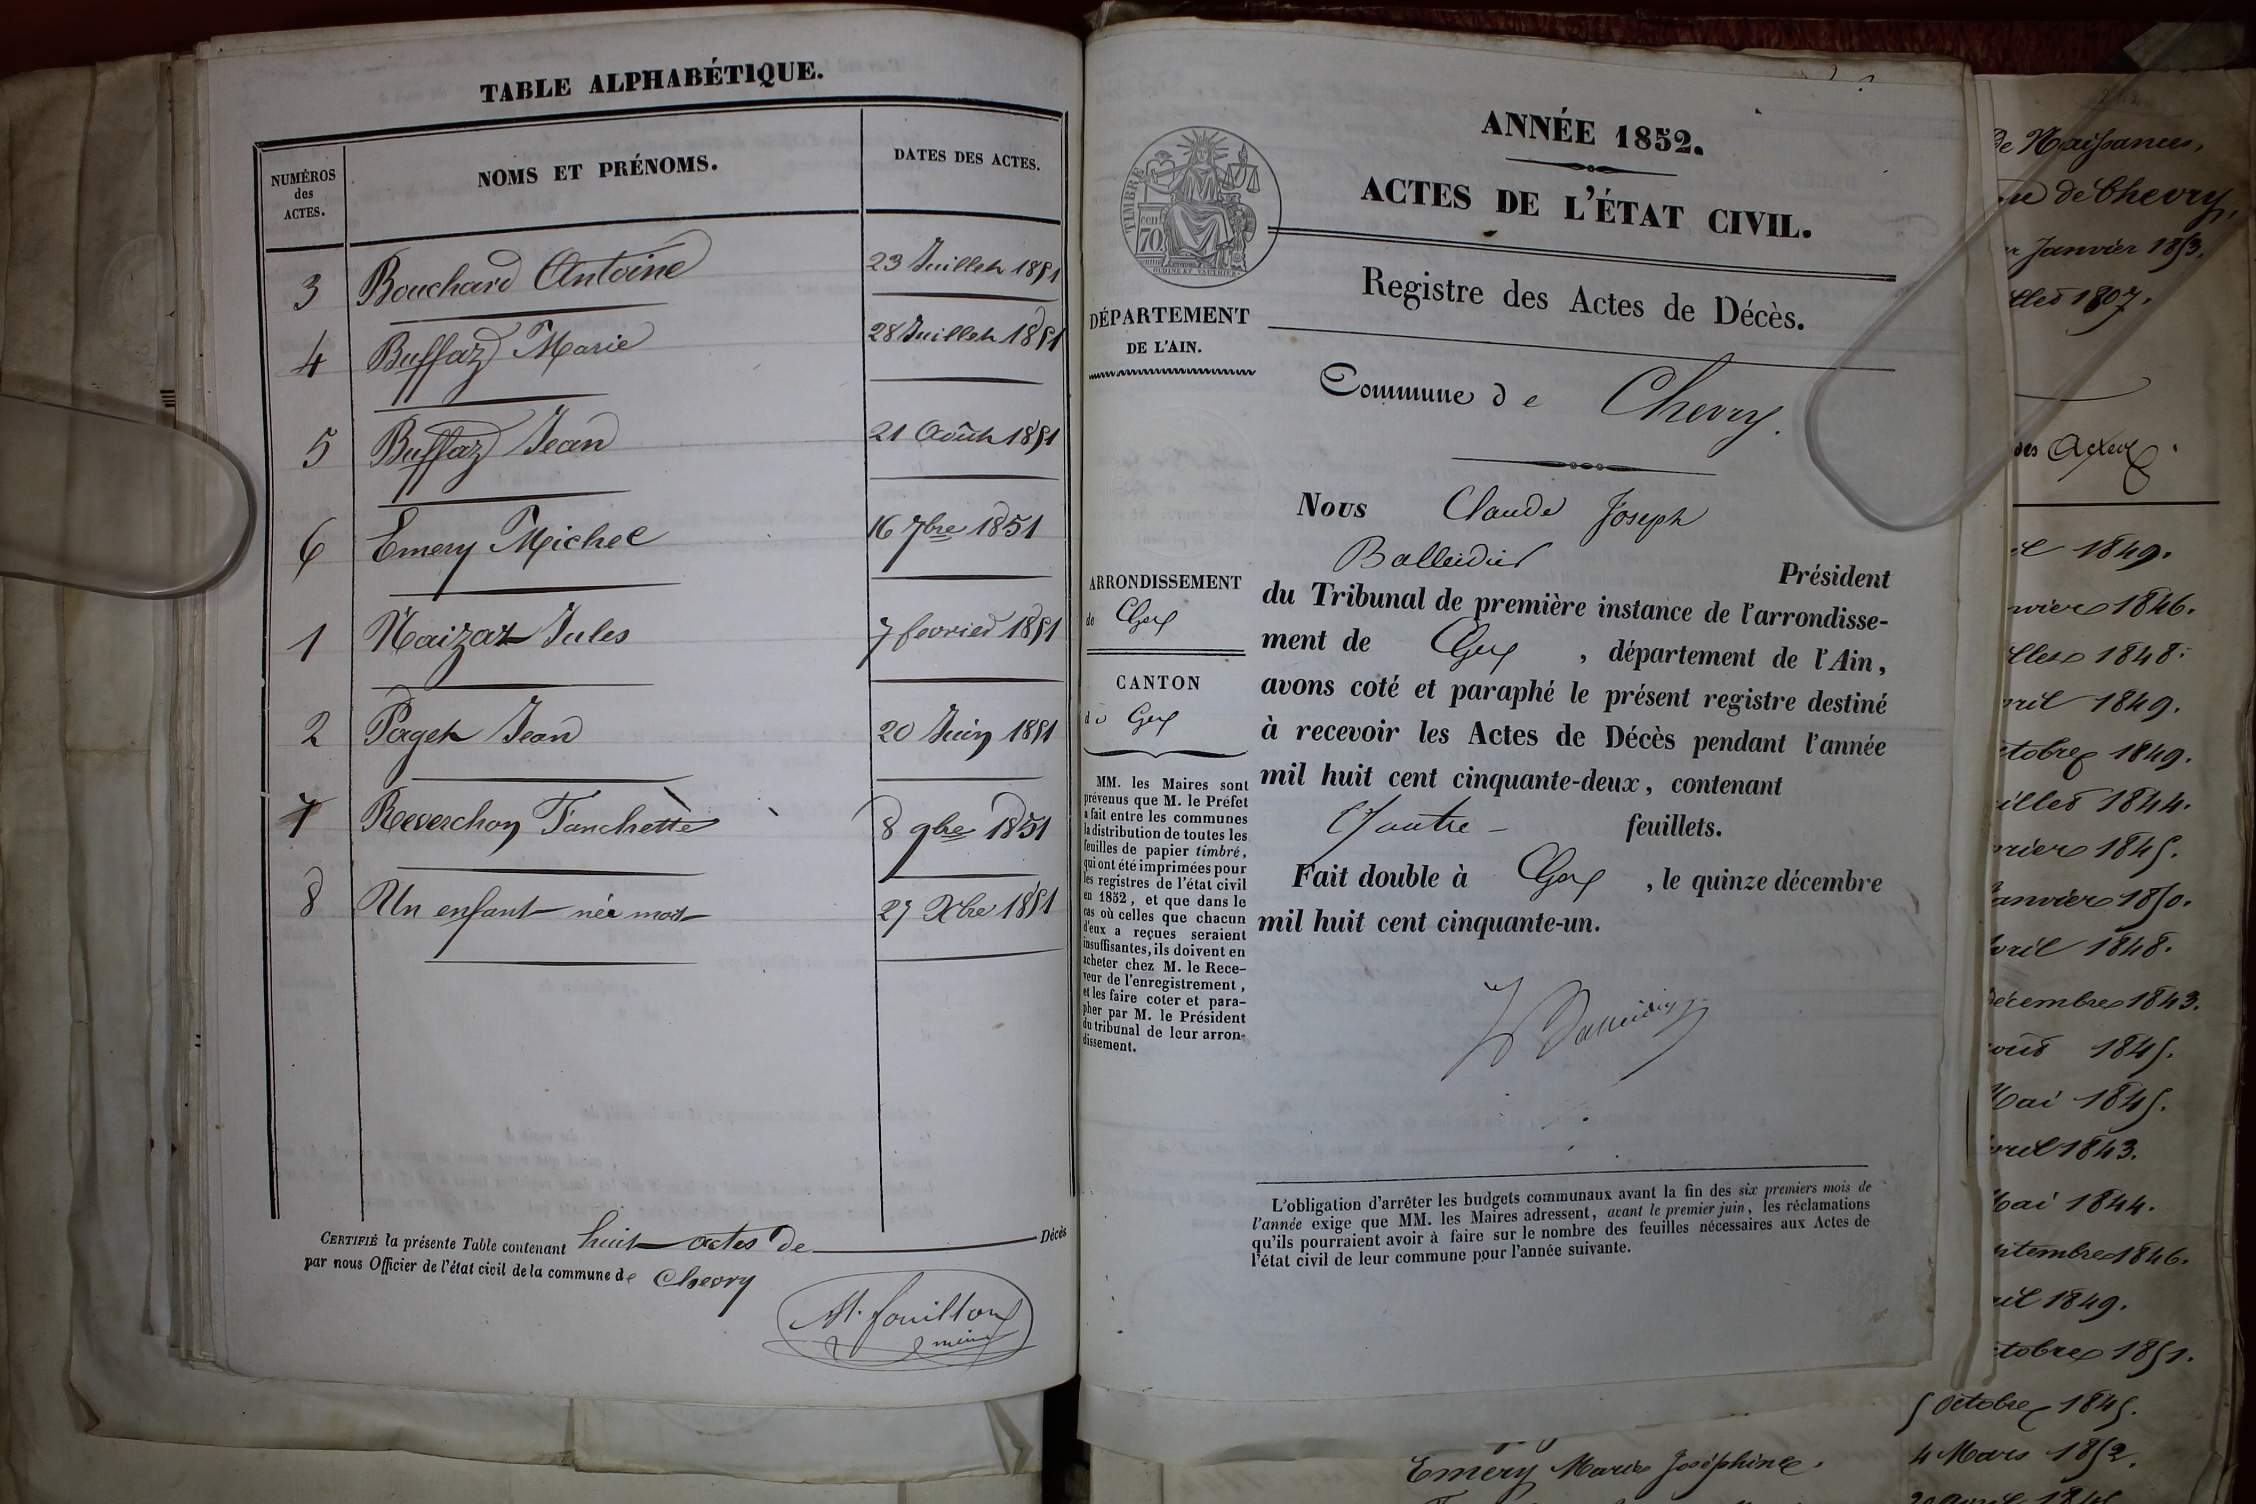 TABLE ALPHABÉTIQUE.
NUMÉROS
des
ACTES.
NOMS ET PRÉNOMS.
DATES DES ACTES.
3 Bouchard Antoine 23 Juillet 1851
4 Buffaz Marie 28 Juillet 1851
5 Buffaz Jean 21 Août 1851
6 Emery Michel 16 7bre 1851
1 Naizaz Jules 7 fevrier 1851
2 Paget Jean 20 Juin 1851
7 Reverchon Fanchette 8 9bre 1851
8 Un enfant née mort 27 Xbre 1851
CERTIFIÉ la présente Table contenant huit actes de Décès
par nous Officier de l'état civil de la commune de Chevry
M. fouilloux
maire
ANNÉE 1852.
ACTES DE L'ÉTAT CIVIL.
Registre des Actes de Décès.
TIMBRE
cent
70
OUDINÉ ET GAUTHIER
DÉPARTEMENT
DE L'AIN.
Commune de Chevry.
Nous Claude Joseph
Balleidier Président
du Tribunal de première instance de l'arrondisse-
ment de Gex, département de l'Ain,
avons coté et paraphé le présent registre destiné
à recevoir les Actes de Décès pendant l'année
mil huit cent cinquante-deux, contenant
Quatre feuillets.
Fait double à Gex, le quinze décembre
mil huit cent cinquante-un.
Balleidier
ARRONDISSEMENT
de Gex
CANTON
de Gex
MM. les Maires sont
prévenus que M. le Préfet
a fait entre les communes
la distribution de toutes les
feuilles de papier timbré,
qui ont été imprimées pour
les registres de l'état civil
en 1852, et que dans le
cas où celles que chacun
d'eux a reçues seraient
insuffisantes, ils doivent en
acheter chez M. le Rece-
veur de l'enregistrement,
et les faire coter et para-
pher par M. le Président
du tribunal de leur arron-
dissement.
L'obligation d'arrêter les budgets communaux avant la fin des six premiers mois de
l'année exige que MM. les Maires adressent, avant le premier juin, les réclamations
qu'ils pourraient avoir à faire sur le nombre des feuilles nécessaires aux Actes de
l'état civil de leur commune pour l'année suivante.
de Naissances,
de Chevry,
Janvier 1853.
1807.
des Actes
1849.
1846.
1848.
1849.
1849.
1844.
1845.
1850.
1848.
1843.
1845.
Mai 1845.
1843.
Mai 1844.
1846.
1849.
1851.
5 Octobre 1845.
Emery Marie Joséphine. 4 Mars 1852.